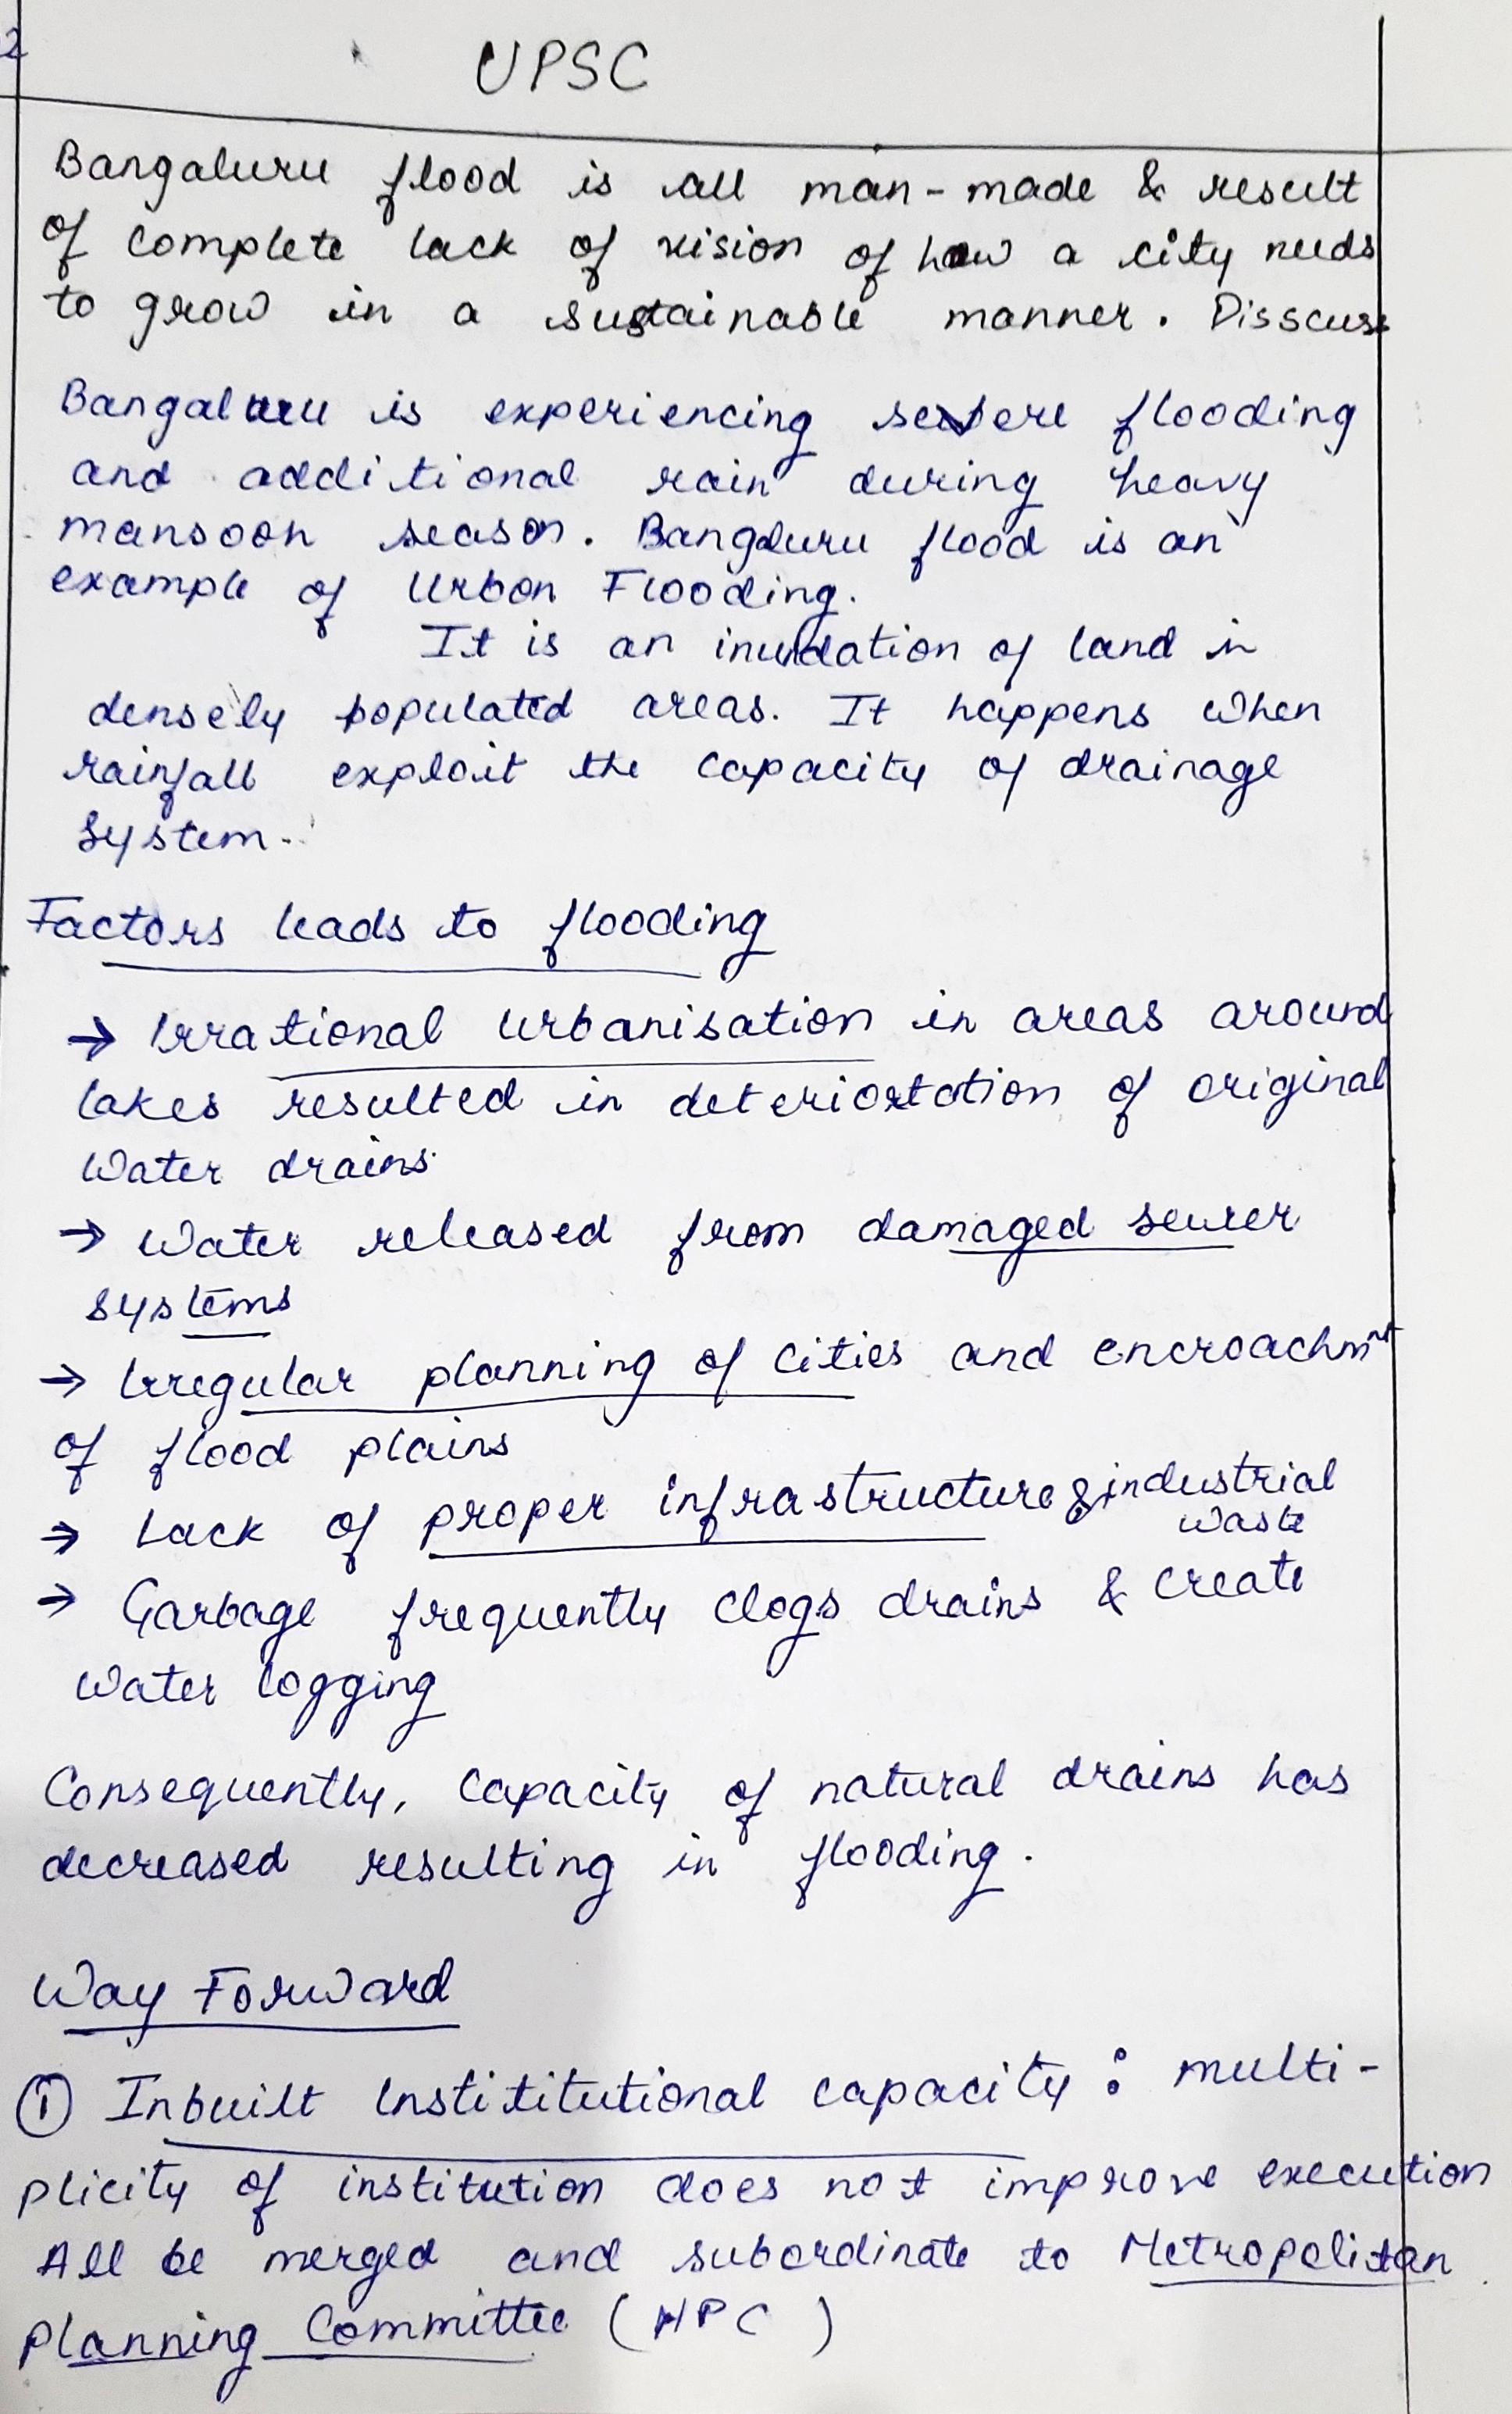 2
UPSC
Bangaluru flood is all man-made & result
of complete lack of vision of how a city needs
to grow in a sustainable manner. Disscuss
Bangaluru is experiencing severe flooding
and additional rain during heavy
mansoon season. Bangaluru flood is an
example of Urban Flooding.
It is an inundation of land in
densely populated areas. It happens when
rainfall exploit the capacity of drainage
system.
Factors leads to flooding
→ Irrational urbanisation in areas around
lakes resulted in deterioration of original
water drains.
→ Water released from damaged sewer
systems
→ Irregular planning of cities and encroachmnt
of flood plains
→ Lack of proper infrastructure & industrial
waste
→ Garbage frequently clogs drains & create
water logging
Consequently, capacity of natural drains has
decreased resulting in flooding.
Way Forward
① Inbuilt Instititutional capacity : multi-
plicity of institution does not improve execution
All be merged and subordinate to Metropolitan
Planning Committee (MPC)